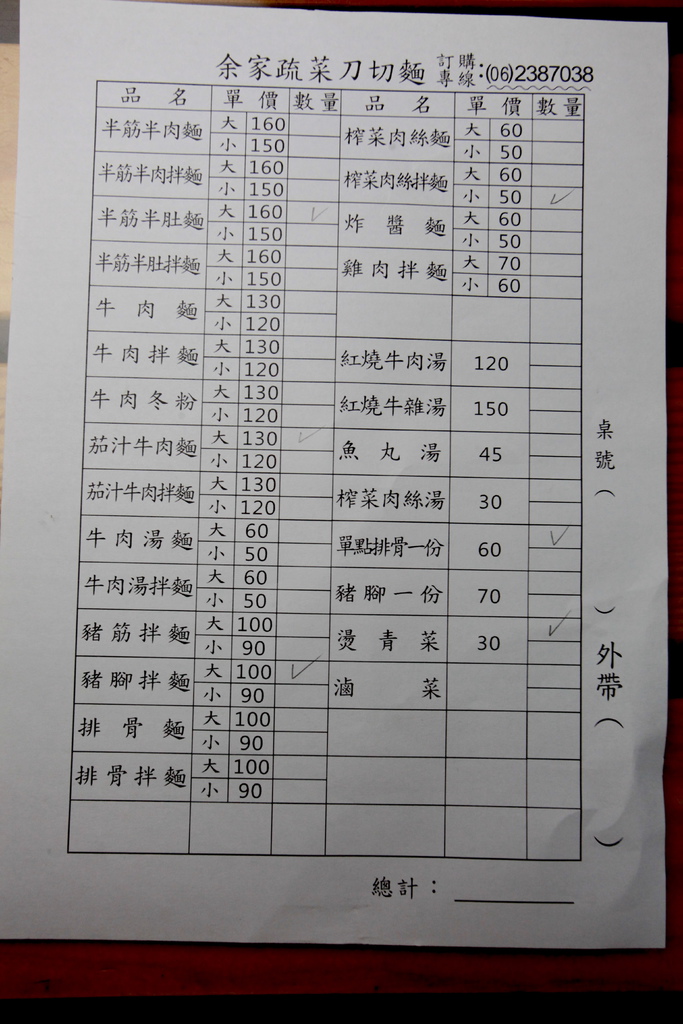 余家疏菜刀切麵 訂購專線:(06)2387038
品名 單價 數量 品名 單價 數量
半筋半肉麵 大 160 榨菜肉絲麵 大 60
小 150 小 50
半筋半肉拌麵 大 160 榨菜肉絲拌麵 大 60
小 150 小 50 ✓
半筋半肚麵 大 160 ✓ 炸醬麵 大 60
小 150 小 50
半筋半肚拌麵 大 160 雞肉拌麵 大 70
小 150 小 60
牛肉麵 大 130
小 120
牛肉拌麵 大 130 紅燒牛肉湯 120
小 120
牛肉冬粉 大 130 紅燒牛雜湯 150
小 120
茄汁牛肉麵 大 130 ✓ 魚丸湯 45
小 120
茄汁牛肉拌麵 大 130 榨菜肉絲湯 30
小 120
牛肉湯麵 大 60 單點排骨一份 60 ✓
小 50
牛肉湯拌麵 大 60 豬腳一份 70
小 50
豬筋拌麵 大 100 燙青菜 30 ✓
小 90
豬腳拌麵 大 100 ✓ 滷菜
小 90
排骨麵 大 100
小 90
排骨拌麵 大 100
小 90
總計：
桌號（ ）外帶（ ）